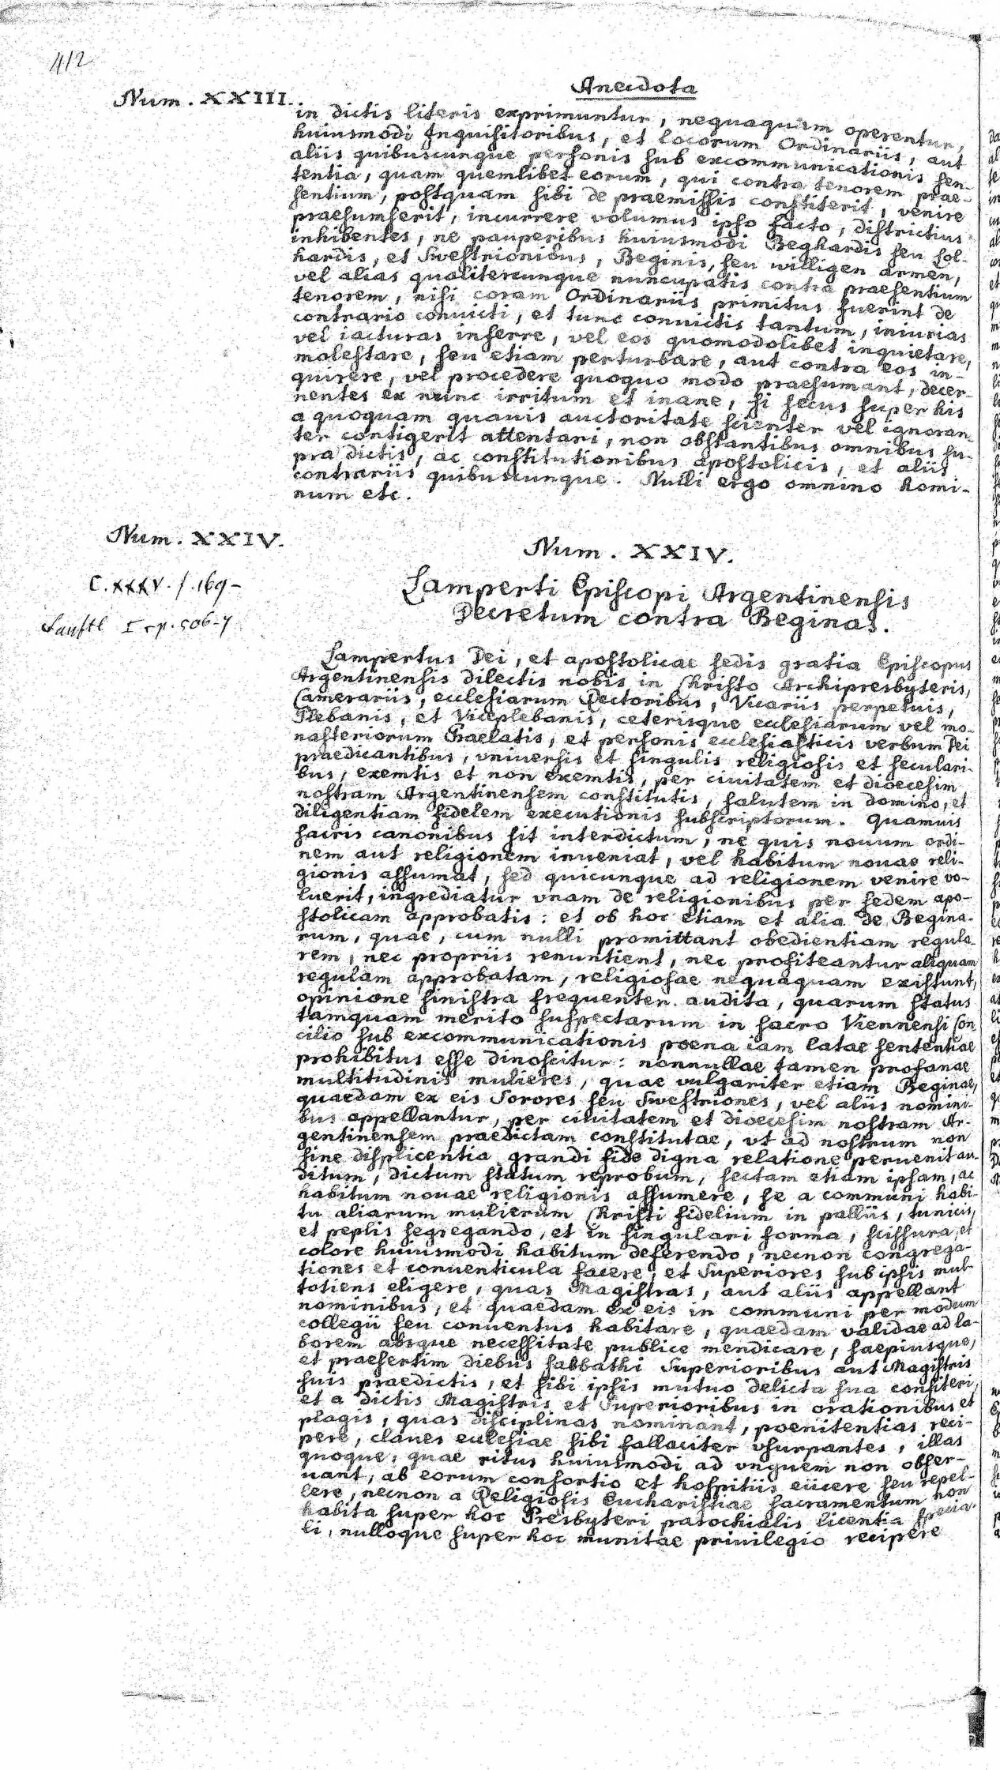 412
Anecdota
Num. XXIII.
in dictis literis exprimuntur, nequaquam operentur,
huiusmodi Inquisitoribus, et locorum Ordinariis, aut
aliis quibuscunque personis sub excommunicationis sen-
tentia, quam quemlibet eorum, qui contra tenorem prae-
sentium, postquam sibi de praemissis constiterit, venire
praesumserit, incurrere volumus ipso facto, districtius
inhibentes, ne pauperibus huiusmodi Beghardis seu Lol-
hardis, et Swestrionibus, Beginis, seu willigen armen,
vel alias qualitercunque nuncupatis contra praesentium
tenorem, nisi coram Ordinariis primitus fuerint de
contrario convicti, et tunc convictis tantum, iniurias
vel iacturas inferre, vel eos quomodolibet inquietare,
molestare, seu etiam perturbare, aut contra eos in-
quirere, vel procedere quoquo modo praesumant, decer-
nentes ex nunc irritum et inane, si secus super his
a quoquam quavis auctoritate scienter vel ignoran-
ter contigerit attentari, non obstantibus omnibus su-
pra dictis, ac constitutionibus apostolicis, et aliis
contrariis quibuscunque. Nulli ergo omnino homi-
num etc.
Num. XXIV.
Num. XXIV.
C. XXXV. f. 169-
I cp. 506-7
Lamperti Episcopi Argentinensis
Decretum contra Beginas.
Lampertus Dei, et apostolicae sedis gratia Episcopus
Argentinensis dilectis nobis in Christo Archipresbyteris,
Camerariis, ecclesiarum Rectoribus, Vicariis perpetuis,
Plebanis, et Viceplebanis, ceterisque ecclesiarum vel mo-
nasteriorum Praelatis, et personis ecclesiasticis verbum Dei
praedicantibus, vniversis et singulis religiosis et seculari-
bus, exemtis et non exemtis, per civitatem et dioecesim
nostram Argentinensem constitutis, salutem in domino, et
diligentiam fidelem executionis subscriptorum. Quamuis
sacris canonibus sit interdictum, ne quis nouum ordi-
nem aut religionem inveniat, vel habitum nouae reli-
gionis assumat, sed quicunque ad religionem venire vo-
luerit, ingrediatur vnam de religionibus per sedem apo-
stolicam approbatis: et ob hoc etiam et alia de Begina-
rum, quae, cum nulli promittant obedientiam regula-
rem, nec propriis renuntient, nec profiteantur aliquam
regulam approbatam, religiosae nequaquam existunt,
opinione sinistra frequenter audita, quarum status
tamquam merito suspectarum in sacro Viennensi Con
cilio sub excommunicationis poena iam latae sententiae
prohibitus esse dinoscitur: nonnullae tamen profanae
multitudinis mulieres, quae vulgariter etiam Beginae,
quaedam ex eis Sorores seu Swestriones, vel aliis nomini-
bus appellantur, per civitatem et dioecesim nostram Ar-
gentinensem praedictam constitutae, vt ad nostrum non
sine displicentia grandi fide digna relatione peruenit au-
ditum, dictum statum reprobum, sectam etiam ipsam, ac
habitum nouae religionis assumere, se a communi habi-
tu aliarum mulierum Christi fidelium in palliis, tunicis,
et peplis segregando, et in singulari forma, scissura, et
colore huiusmodi habitum deferendo, necnon congrega-
tiones et conventicula facere et Superiores sub ipsis mul
totiens eligere, quas Magistras, aut aliis appellant
nominibus, et quaedam ex eis in communi per modum
collegii seu conuentus habitare, quaedam validae ad la-
borem absque necessitate publice mendicare, saepiusque,
et praesertim diebus sabbathi Superioribus aut Magistris
suis praedictis, et sibi ipsis mutuo delicta sua confiteri,
et a dictis Magistris et Superioribus in orationibus et
plagis, quas disciplinas nominant, poenitentias reci-
pere, claues ecclesiae sibi fallaciter vsurpantes, illas
quoque, quae ritus huiusmodi ad vnguem non obser-
uant, ab eorum consortio et hospitiis eiicere seu repel-
lere, necnon a Religiosis Eucharistiae sacramentum non
habita super hoc Presbyteri parochialis licentia specia-
li, nulloque super hoc munitae privilegio recipere